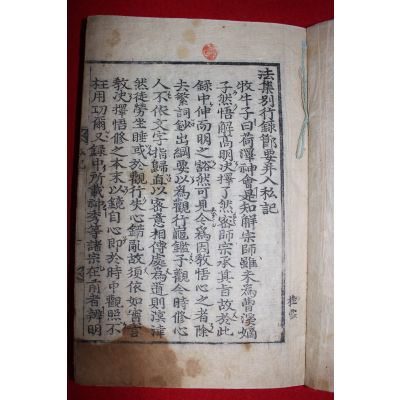 法集別行錄節要并入私記
牧牛子曰荷澤神會是知解宗師雖未為曹溪嫡
子然悟解高明決擇了然密師宗承其旨故於此
錄中伸而明之豁然可見今為因教悟心之者除
去繁詞鈔出綱要以為觀行龜鑑予觀今時修心
人不依文字指歸直以密意相傳處為道則溟涬
然徒勞坐睡或於觀行失心錯亂故須依如實言
教決擇悟修之本末以鏡自心即於時中觀照不
枉用功爾又錄中所載神秀等諸宗在前者辨明